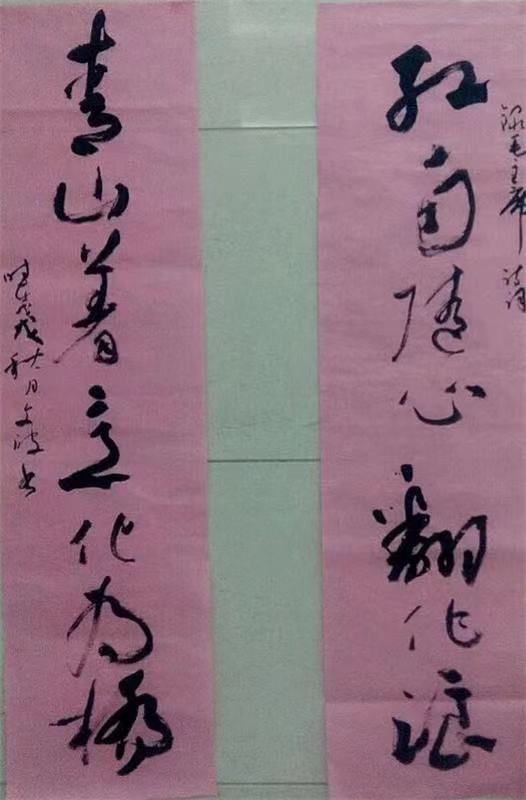 录毛主席诗词
红雨随心翻作浪
青山着意化为桥
时戊戌秋月文波书